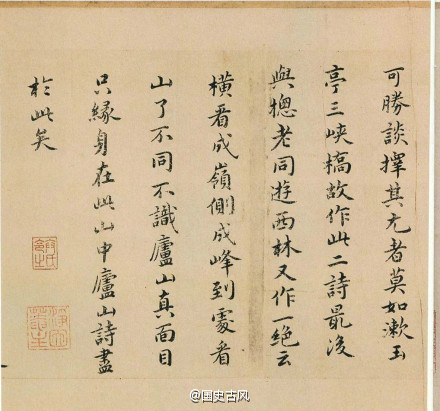 可勝談擇其尤者莫如漱玉
亭三峽橋故作此二詩最後
與摠老同遊西林又作一絕云
橫看成嶺側成峰到處看
山了不同不識廬山真面目
只緣身在此山中廬山詩盡
於此矣
@国史古风